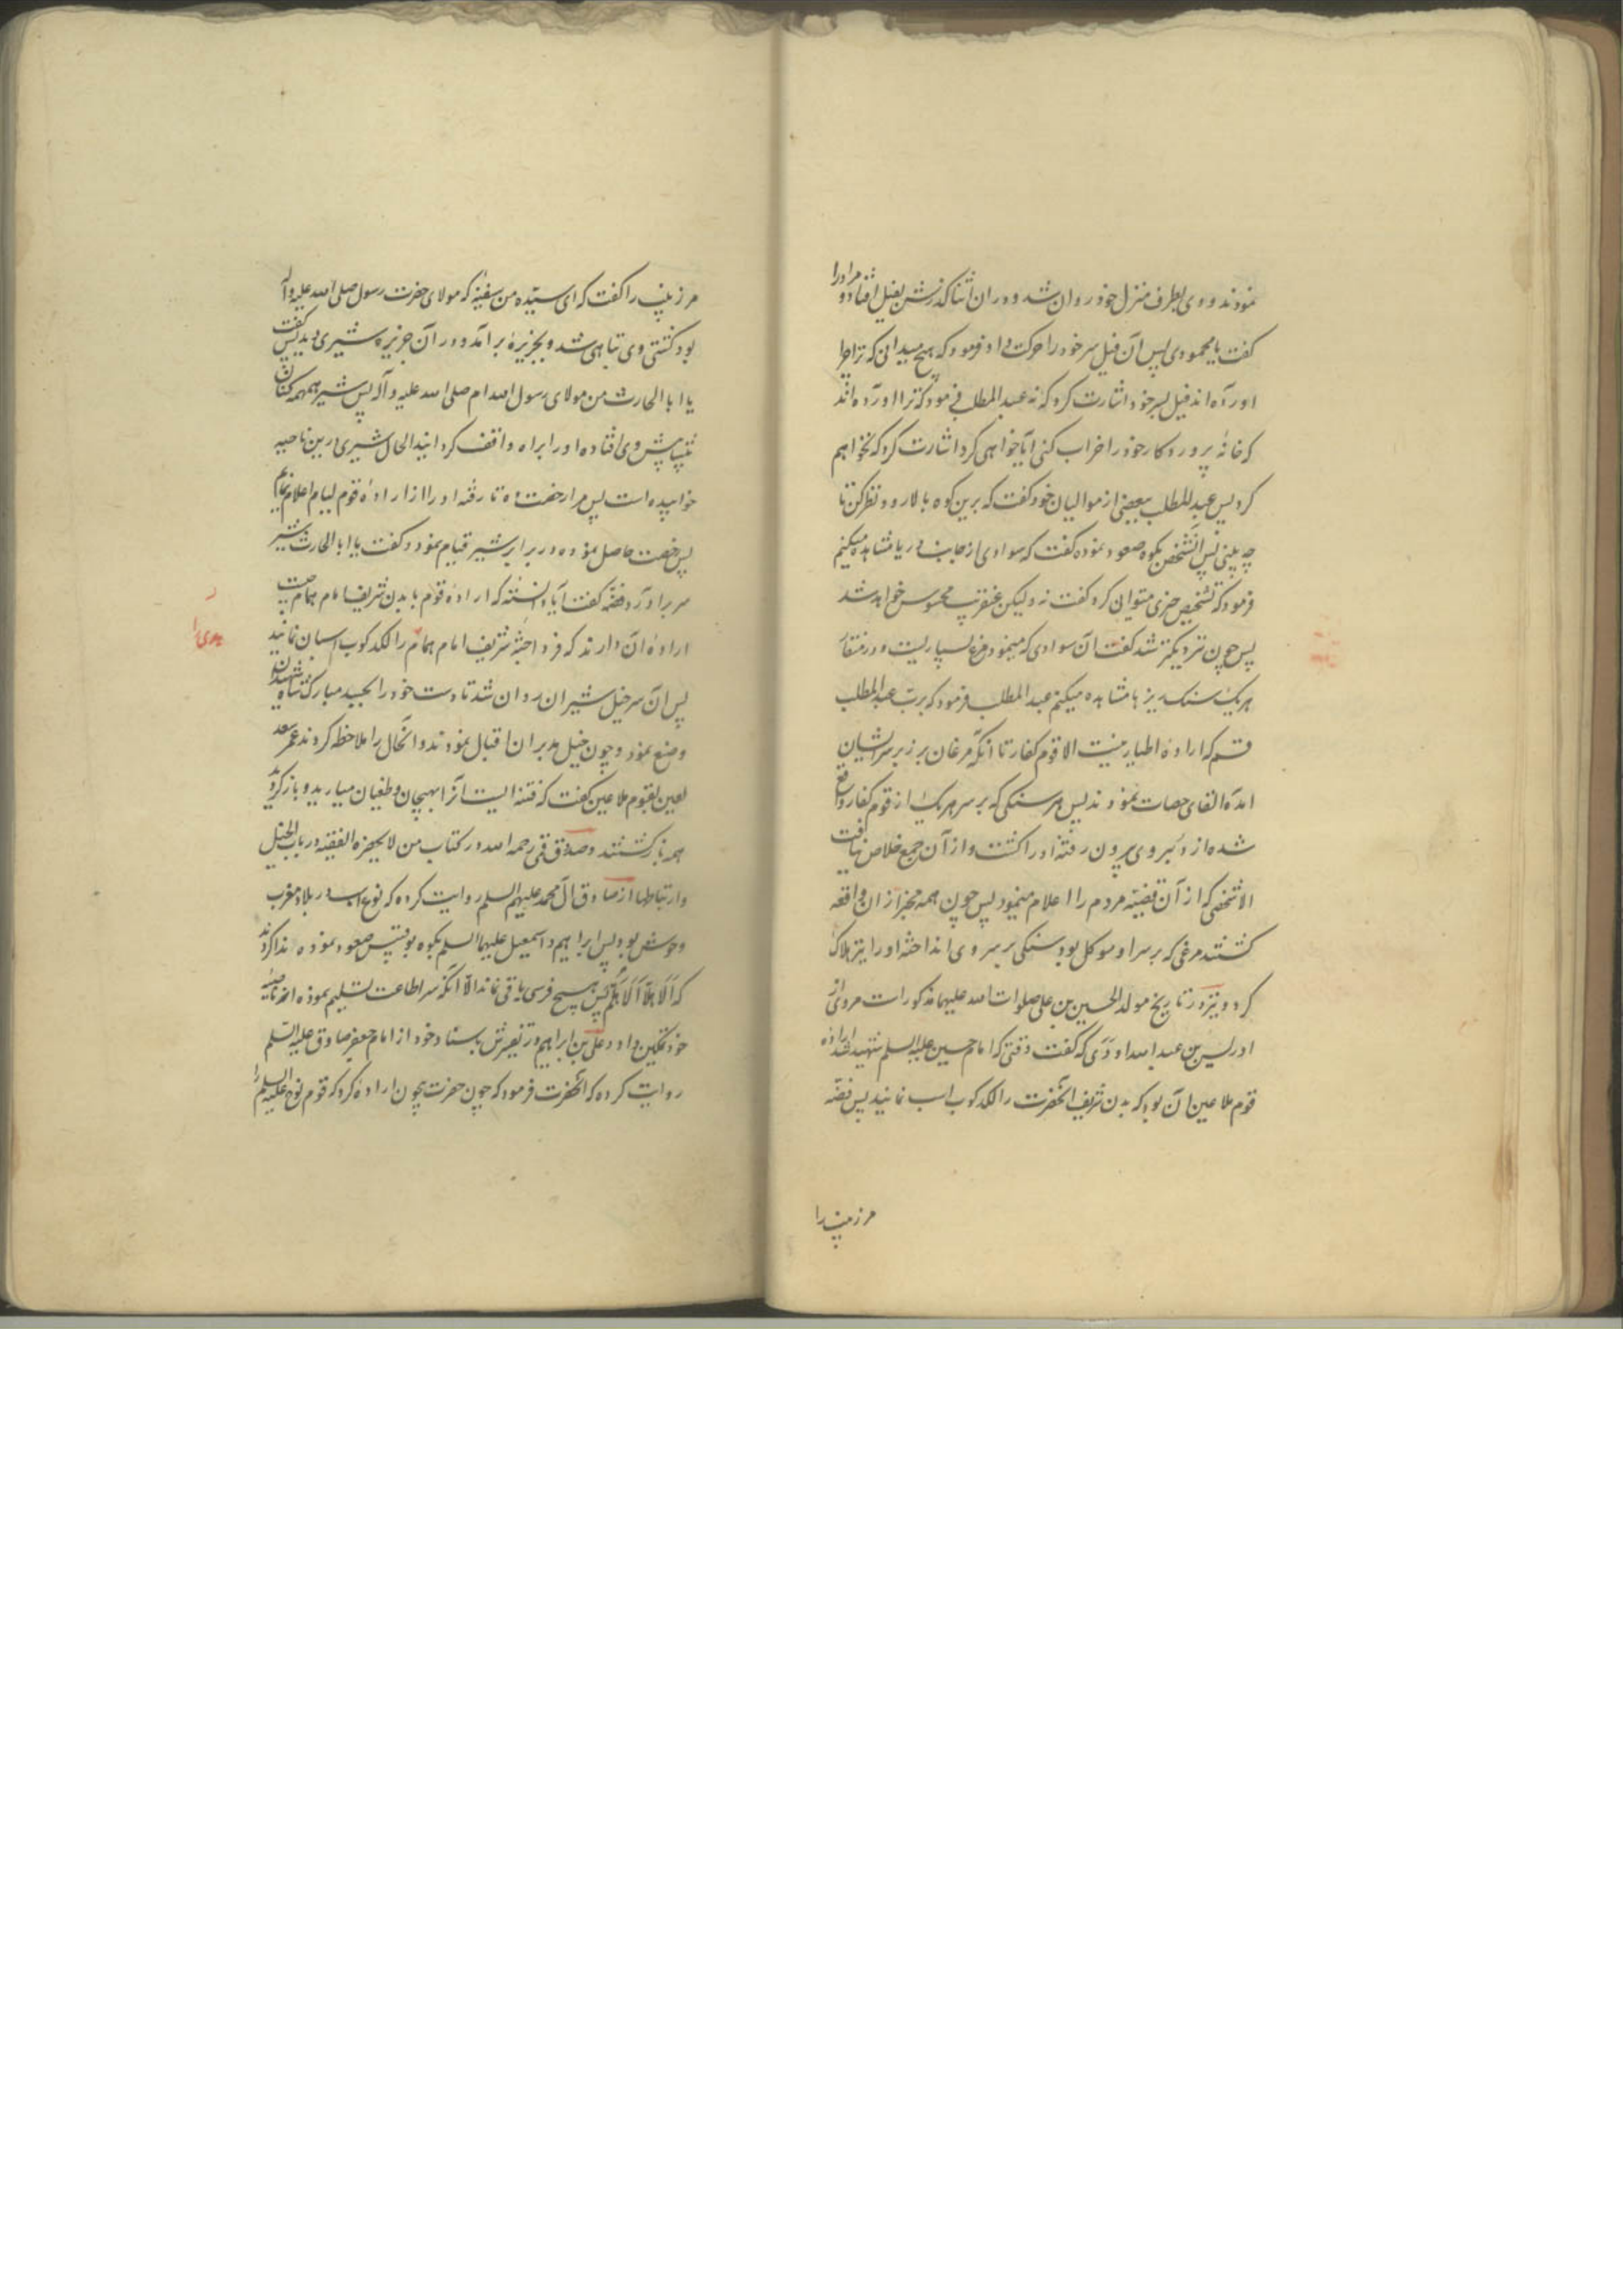 نمودند و وی بطرف منزل خود روان شد و در ان اثنا گذرش بفیل افتاد و مر او را
گفت یا محمود پس آن فیل سر خود را حرکت داد فرمود که هیچ میدانی که ترا چرا
آورده اند فیل بسر خود اشارت کرد که نه عبد المطلب فرمود که ترا آورده اند
که خانهٔ پروردکار خود را خراب کنی آیا خواهی کرد اشارت کرد که نخواهم
کرد پس عبد المطلب ببعضی از موالیان خود گفت که برین کوه بالا رو و نظر کن تا
چه بینی پس آنشخص بکوه صعود نموده گفت که سوادی از جانب دریا مشاهده میکنم
فرمود که تشخیص چیزی میتوانی کرد گفت نه ولیکن عنقریب محسوس خواهد شد
پس چون نزدیکتر شد گفت آن سوادی که مینمود مرغ بسیاریست و در منقار
هریک سنک ریزها مشاهده میکنم عبد المطلب فرمود که برب عبد المطلب
قسم که اراده اطیار نیست الا قوم کفار تا آنکه مرغان بر زبر سر ایشان
آمده القای حصات نمودند پس هر سنگی که بر سر هریک از قوم کفار واقع
شده از دبر وی بیرون رفته او را کشت و از آن جمع خلاص نیافت
الا شخصی که از آن قضیه مردم را اعلام مینمود پس چون همه مخبر از ان واقعه
گشتند مرغی که بر سر او موکل بود سنگی بر سر وی انداخته او را نیز هلاک
کرد و نیز در تاریخ مولد الحسین بن علی صلوات الله علیهما مذکورست مروی از
ادریس بن عبد الله اودی که گفت وقتی که امام حسین علیه السلم شهید شد اراده
قوم ملاعین آن بود که بدن شریف آنحضرت را لکدکوب اسب نمایند پس فضه
مر زینب را
مر زینب را گفت که ای سیده من سفینه که مولای حضرت رسول صلی الله علیه و آله
بود کشتی وی تباهی شد و بجزیرهٔ برآمد و در آن جزیره شیری دید پس گفت
یا ابا الحارث من مولای رسول الله ام صلی الله علیه و آله پس شیر همهمه کنان
پیش وی افتاده او را براه واقف کردانید الحال شیری درین ناحیه
خوابیده است پس مرا رخصت ده تا رفته او را از ارادهٔ قوم لیام اعلام نمایم
پس رخصت حاصل نموده در برابر شیر قیام نمود و گفت یا ابا الحارث شیر
سر برآورد فضه گفت آیا دانستهٔ که ارادهٔ قوم با بدن شریف امام همام چیست
ارادهٔ آن دارند که فردا جثهٔ شریف امام همام را لکدکوب اسبان نمایند
پس آن سر خیل شیران روان شد تا دست خود را بجسد مبارک شاه شهیدان
وضع نمود و چون خیل مدبران اقبال نمودند و آنحال را ملاحظه کردند عمر سعد
لعین بقوم ملاعین گفت که فتنه ایست آنرا بهیجان و طغیان میارید و بازگردید
همه بازگشتند و صدوق قمی رحمه الله در کتاب من لا یحضره الفقیه در باب الخیل
و ارتباطها از صادق آل محمد علیهم السلم روایت کرده که نوع اسب در بلاد عرب
وحوش بود پس ابراهیم و اسمعیل علیهما السلم بکوه بوقبیس صعود نموده ندا کردند
که الا هلا الا هلم پس هیچ فرسی باقی نماند الا آنکه سر اطاعت تسلیم نموده از ناصیه
خود تمکین داد و علی بن ابراهیم در تفسیرش باسناد خود از امام جعفر صادق علیه السلم
روایت کرده که آنحضرت فرمود که چون حضرت بیچون اراده کرد که قوم نوح علیه السلم را